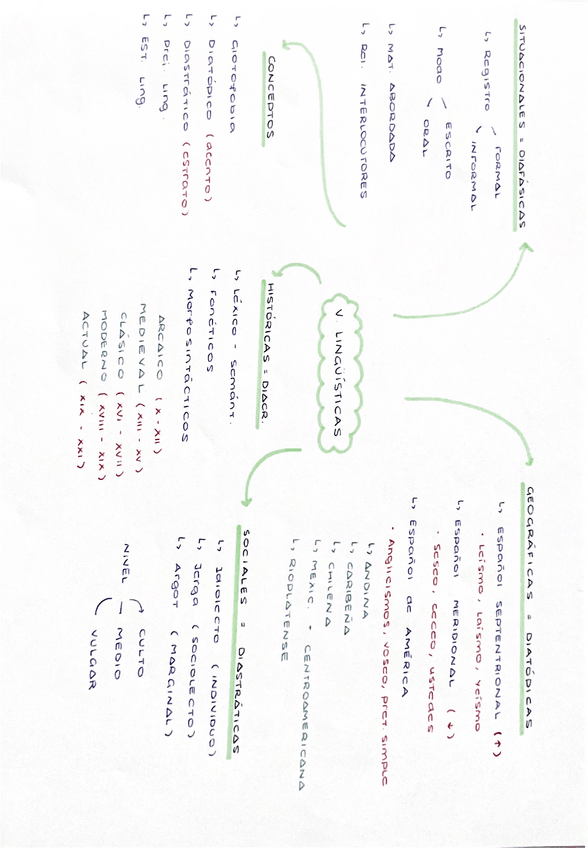 SITUACIONALES = DIAFÁSICAS
↳ Registro
FORMAL
INFORMAL
↳ Modo
ESCRITO
ORAL
↳ MAT. ABORDADA
↳ Rel. INTERLOCUTORES
GEOGRÁFICAS = DIATÓPICAS
↳ ESPAÑOL SEPTENTRIONAL (↑)
· Leísmo, Laísmo, yeísmo
↳ ESPAÑOL MERIDIONAL (↓)
· seseo, ceceo, ustedes
↳ ESPAÑOL de AMÉRICA
· Anglicismos, voseo, pret simple
↳ ANDINA
↳ CARIBEÑA
↳ CHILENA
↳ MEXIC. + CENTROAMERICANA
↳ RIOPLATENSE
V LINGÜÍSTICAS
CONCEPTOS
↳ GLOTOFOBIA
↳ DIATÓPICO (acento)
↳ DIASTRÁTICO (ESTRATO)
↳ Prej. Ling.
↳ EST. Ling.
HISTÓRICAS = DIACR.
↳ LÉXICO - semánt.
↳ FONÉTICOS
↳ MORFOSINTÁCTICOS
ARCAICO (X - XII)
MEDIEVAL (XIII - XV)
CLÁSICO (XVI - XVII)
MODERNO (XVIII - XIX)
ACTUAL (XIX - XXI)
SOCIALES = DIASTRÁTICAS
↳ Idiolecto (INDIVIDUO)
↳ Jerga (SOCIOLECTO)
↳ ARGOT (MARGINAL)
NIVEL
CULTO
MEDIO
VULGAR